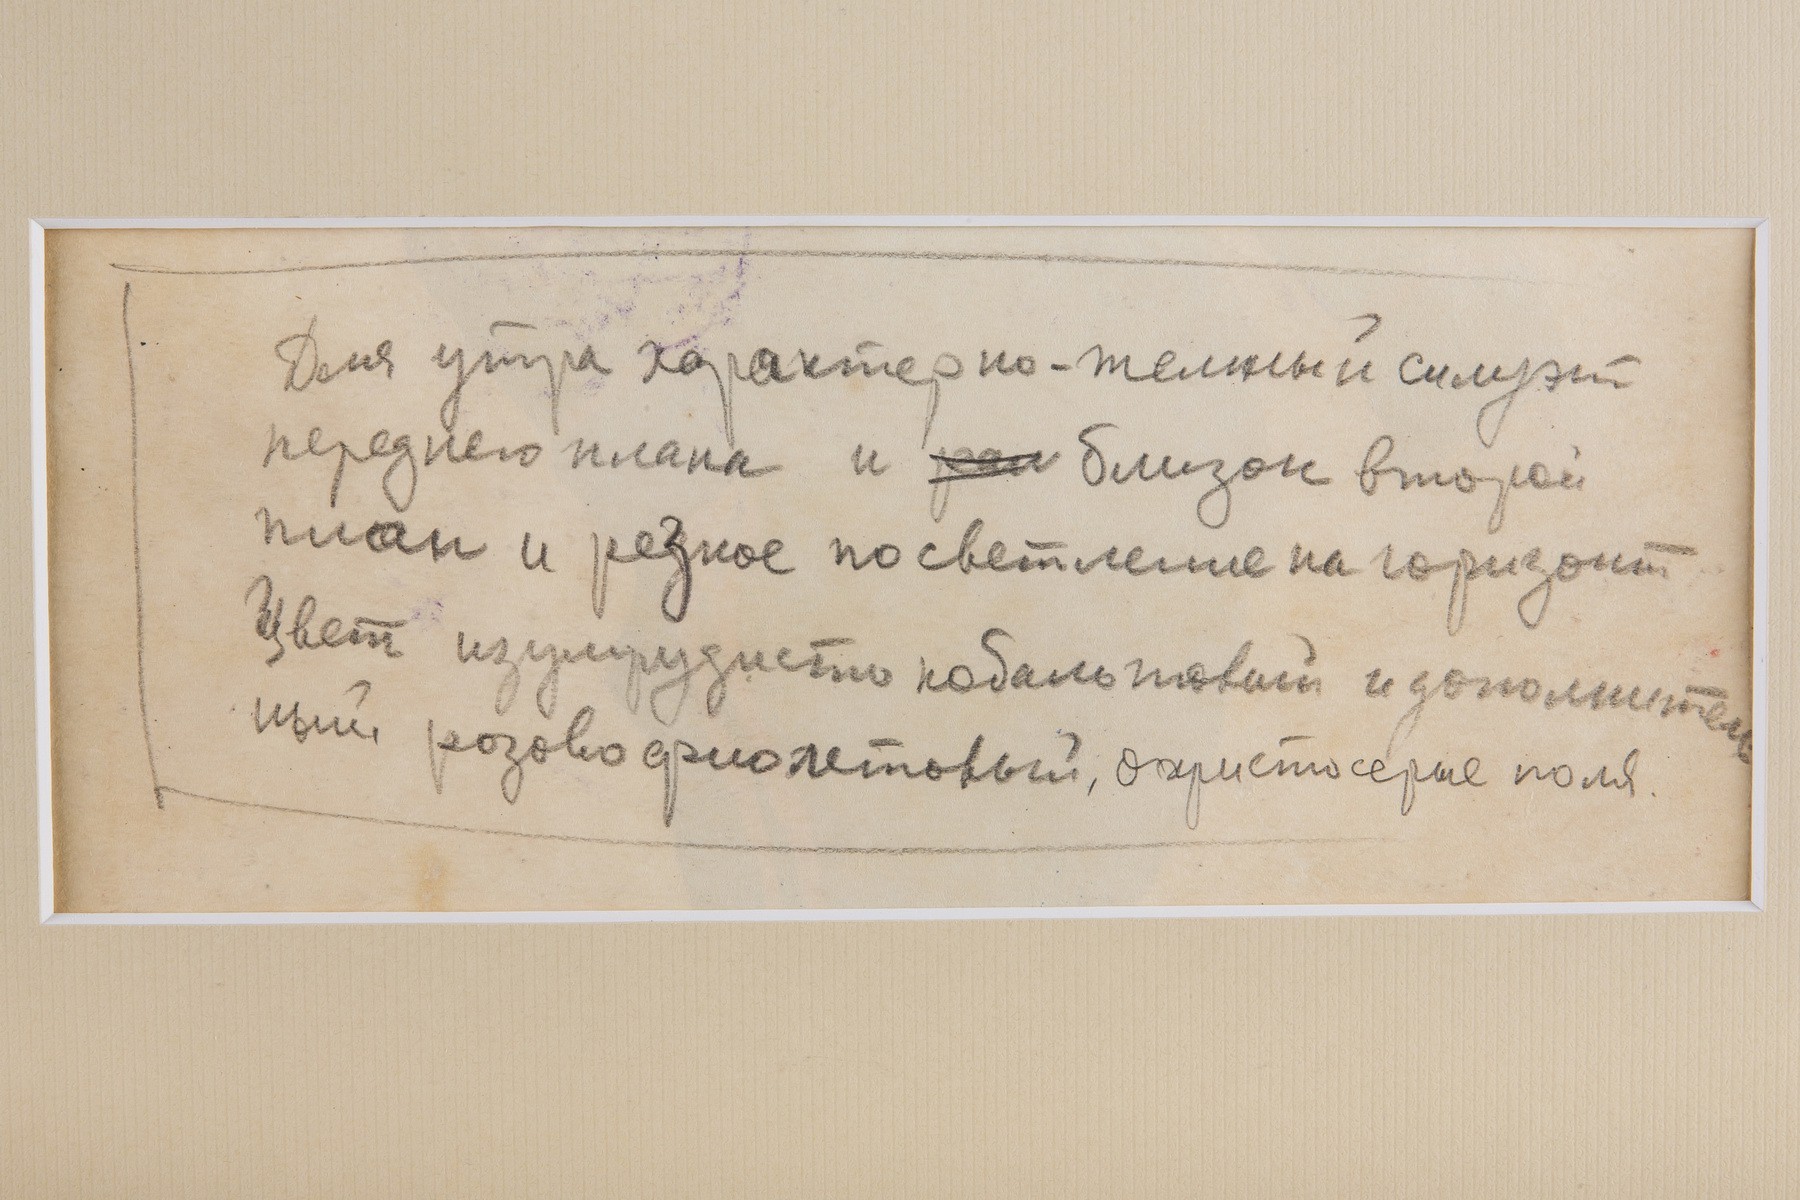 Для утра характерно-темный силуэт
переднего плана и ран близок второй
план и резкое посветление на горизонт
Цвет изумрудисто кобальтовый и дополнитель
ный розово фиолетовый, охристо серые поля.